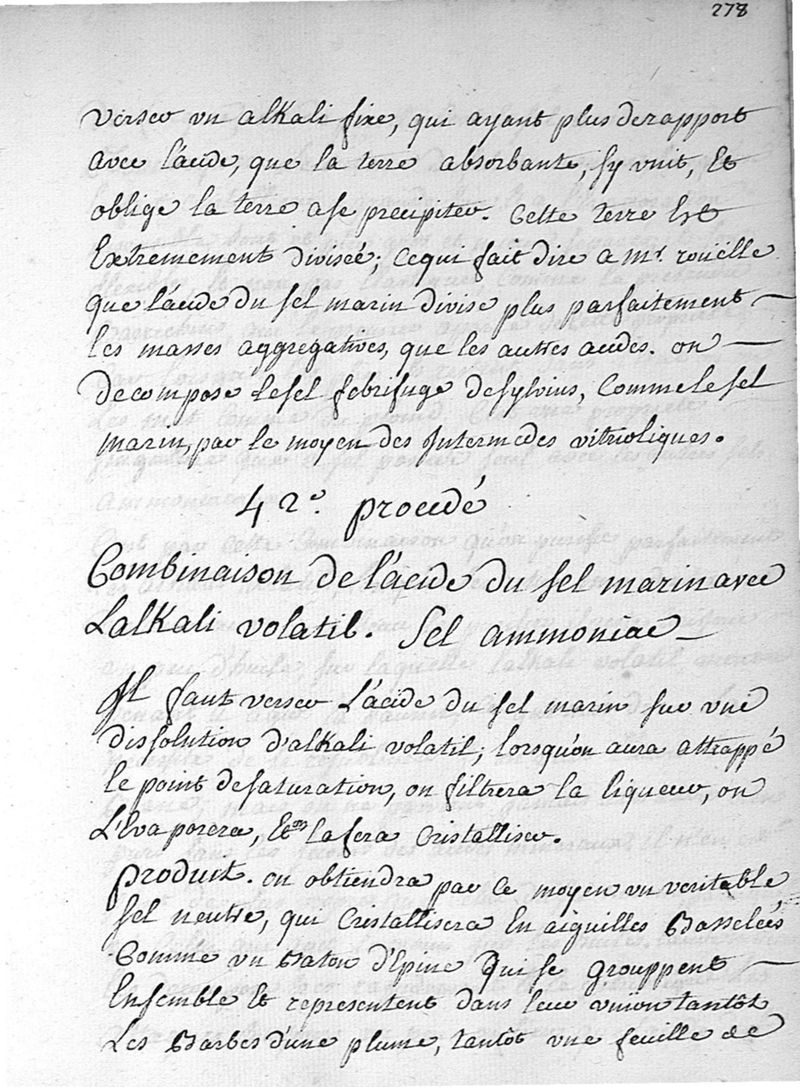 278
verser un alkali fixe, qui ayant plus de rapport
avec l'acide, que la terre absorbante, sy unit, Et
oblige la terre a se precipiter. Cette terre Est
Extremement divisée; ce qui fait dire a mr. rouëlle
que l'acide du sel marin divise plus parfaitement
les masses aggregatives, que les autres acides. on
decompose le sel febrifuge de sylvius, Comme le sel
marin, par le moyen des Intermedes vitrioliques.
42e. procedé
Combinaison de l'acide du sel marin avec
L'alkali volatil. Sel ammoniac
Il faut verser L'acide du sel marin sur une
dissolution d'alkali volatil; lorsqu'on aura attrappé
le point de saturation, on filtrera la liqueur, on
L'Evaporera, Et on la fera Cristalliser.
produit. on obtiendra par ce moyen un veritable
sel neutre, qui Cristallisera En aiguilles
Comme un Baton d'Epine qui se grouppent
Ensemble Et representent dans leur union tantôt
Les Barbes d'une plume, tantôt une feuille de